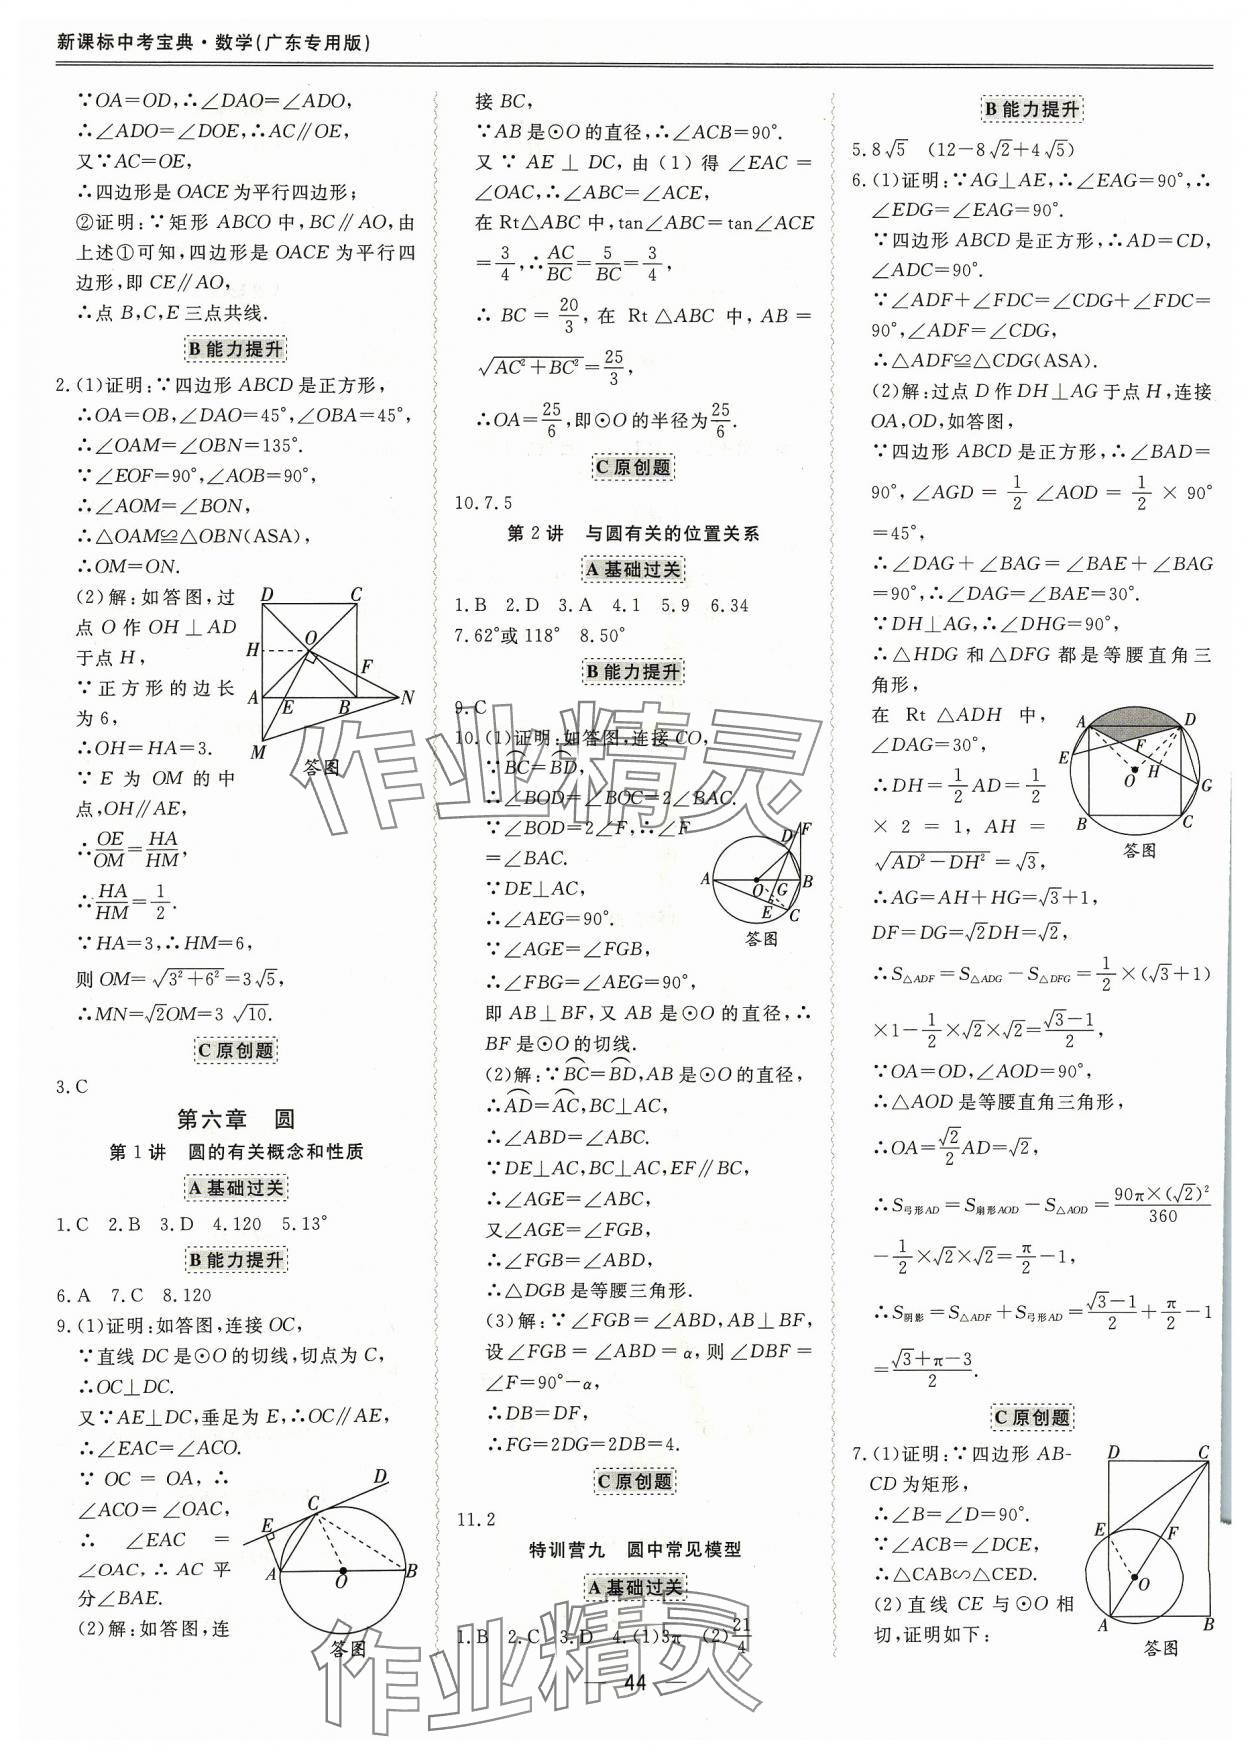 新课标中考宝典·数学(广东专用版)
∵OA=OD,∴∠DAO=∠ADO,
∴∠ADO=∠DOE,∴AC∥OE,
又∵AC=OE,
∴四边形是 OACE 为平行四边形;
②证明:∵矩形 ABCO 中,BC∥AO,由
上述①可知,四边形是 OACE 为平行四
边形,即 CE∥AO,
∴点 B,C,E 三点共线.
B 能力提升
2.(1)证明:∵四边形 ABCD 是正方形,
∴OA=OB,∠DAO=45°,∠OBA=45°,
∴∠OAM=∠OBN=135°.
∵∠EOF=90°,∠AOB=90°,
∴∠AOM=∠BON,
∴△OAM≌△OBN(ASA),
∴OM=ON.
(2)解:如答图,过
点 O 作 OH⊥AD
于点 H,
∵正方形的边长
为 6,
∴OH=HA=3.
∵E 为 OM 的中
点,OH∥AE,
∴OE/OM=HA/HM,
∴HA/HM=1/2.
∵HA=3,∴HM=6,
则 OM=√(3²+6²)=3√5,
∴MN=√2OM=3√10.
D C O H F A E B N M
答图
C 原创题
3.C
第六章 圆
第 1 讲 圆的有关概念和性质
A 基础过关
1.C 2.B 3.D 4.120 5.13°
B 能力提升
6.A 7.C 8.120
9.(1)证明:如答图,连接 OC,
∵直线 DC 是⊙O 的切线,切点为 C,
∴OC⊥DC.
又∵AE⊥DC,垂足为 E,∴OC∥AE,
∴∠EAC=∠ACO.
∵OC=OA,∴
∠ACO=∠OAC,
∴∠EAC=
∠OAC,∴AC 平
分∠BAE.
(2)解:如答图,连
D C E A O B
答图
接 BC,
∵AB 是⊙O 的直径,∴∠ACB=90°.
又∵AE⊥DC,由(1)得∠EAC=
∠OAC,∴∠ABC=∠ACE,
在 Rt△ABC 中,tan∠ABC=tan∠ACE
=3/4,∴AC/BC=5/BC=3/4,
∴BC=20/3,在 Rt△ABC 中,AB=
√(AC²+BC²)=25/3,
∴OA=25/6,即⊙O 的半径为25/6.
C 原创题
10.7.5
第 2 讲 与圆有关的位置关系
A 基础过关
1.B 2.D 3.A 4.1 5.9 6.34
7.62°或 118° 8.50°
B 能力提升
9.C
10.(1)证明:如答图,连接 CO,
∵⌒BC=⌒BD,
∴∠BOD=∠BOC=2∠BAC.
∵∠BOD=2∠F,∴∠F
=∠BAC.
∵DE⊥AC,
∴∠AEG=90°.
∵∠AGE=∠FGB,
∴∠FBG=∠AEG=90°,
即 AB⊥BF,又 AB 是⊙O 的直径,∴
BF 是⊙O 的切线.
D F A O G B E C
答图
(2)解:∵⌒BC=⌒BD,AB 是⊙O 的直径,
∴⌒AD=⌒AC,BC⊥AC,
∴∠ABD=∠ABC.
∵DE⊥AC,BC⊥AC,EF∥BC,
∴∠AGE=∠ABC,
又∠AGE=∠FGB,
∴∠FGB=∠ABD,
∴△DGB 是等腰三角形.
(3)解:∵∠FGB=∠ABD,AB⊥BF,
设∠FGB=∠ABD=α,则∠DBF=
∠F=90°-α,
∴DB=DF,
∴FG=2DG=2DB=4.
C 原创题
11.2
特训营九 圆中常见模型
A 基础过关
1.B 2.C 3.D 4.(1)3π (2)21/4
B 能力提升
5.8√5 (12-8√2+4√5)
6.(1)证明:∵AG⊥AE,∴∠EAG=90°,∴
∠EDG=∠EAG=90°.
∵四边形 ABCD 是正方形,∴AD=CD,
∠ADC=90°.
∵∠ADF+∠FDC=∠CDG+∠FDC=
90°,∠ADF=∠CDG,
∴△ADF≌△CDG(ASA).
(2)解:过点 D 作 DH⊥AG 于点 H,连接
OA,OD,如答图,
∵四边形 ABCD 是正方形,∴∠BAD=
90°,∠AGD=1/2∠AOD=1/2×90°
=45°,
∴∠DAG+∠BAG=∠BAE+∠BAG
=90°,∴∠DAG=∠BAE=30°.
∵DH⊥AG,∴∠DHG=90°,
∴△HDG 和△DFG 都是等腰直角三
角形,
在 Rt△ADH 中,
∠DAG=30°,
∴DH=1/2AD=1/2
×2=1,AH=
√(AD²-DH²)=√3,
A D E F H O G B C
答图
∴AG=AH+HG=√3+1,
DF=DG=√2DH=√2,
∴S△ADF=S△ADG-S△DFG=1/2×(√3+1)
×1-1/2×√2×√2=(√3-1)/2,
∵OA=OD,∠AOD=90°,
∴△AOD 是等腰直角三角形,
∴OA=√2/2AD=√2,
∴S弓形AD=S扇形AOD-S△AOD=90π×(√2)²/360
-1/2×√2×√2=π/2-1,
∴S阴影=S△ADF+S弓形AD=(√3-1)/2+π/2-1
=(√3+π-3)/2.
C 原创题
7.(1)证明:∵四边形 AB-
CD 为矩形,
∴∠B=∠D=90°.
∵∠ACB=∠DCE,
∴△CAB∽△CED.
(2)直线 CE 与⊙O 相
切,证明如下:
D C E F O A B
答图
44
作业精灵
作业精灵